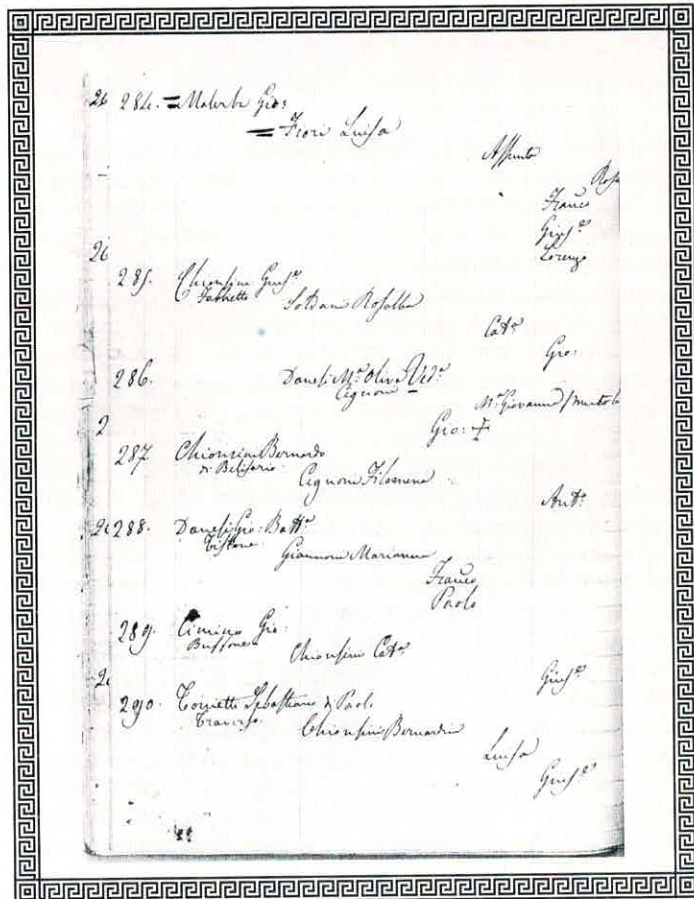 26 284. = Malerba Gio:
= Fiori Luisa
Assunta
Rosa
Franco
Gius.e
Lorenzo
26
285. Chionsini Gius.e
Soldani Rosalba
Cat.a
Gio:
286. Danesi M.a Oliva Ved.a
Cignoni
M.a Giovanna
2
Gio: +
287 Chionsini Bernardo
di Belisario.
Cignoni Filomena
Ant.o
288. Danesi Gio: Batt.a
Giannoni Marianna
Franco
Paolo
289. Cimino Gio:
Chionsini Cat.a
Gius.e
290. Tornetti Sebastiano di Paolo
Traverso.
Chionsini Bernardina
Luisa
Gius.e